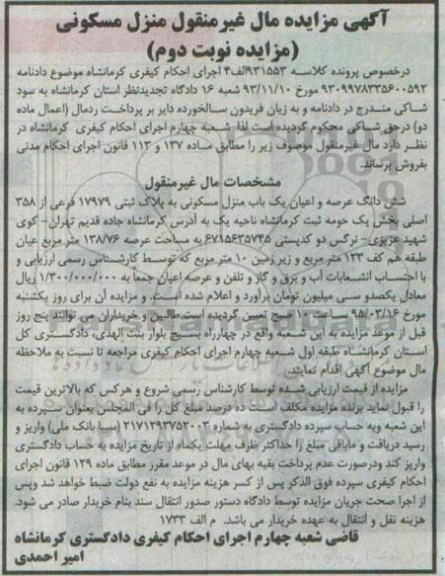 آگهی مزایده مال غیرمنقول منزل مسکونی
(مزایده نوبت دوم)
درخصوص پرونده کلاسه ۹۳۱۵۵۳الف۴ اجرای احکام کیفری کرمانشاه موضوع دادنامه
۹۳۰۹۹۷۸۳۳۵۶۰۰۵۹۲ مورخ ۹۳/۱۱/۱۰ شعبه ۱۶ دادگاه تجدیدنظر استان کرمانشاه به سود
شاکی مندرج در دادنامه و به زیان فریدون سالخورده دایر بر پرداخت ردمال (اعمال ماده
دو) درحق شاکی محکوم گردیده است لذا شعبه چهارم اجرای احکام کیفری کرمانشاه در
نظر دارد مال غیرمنقول موصوف زیر را مطابق ماده ۱۳۷ و ۱۱۳ قانون اجرای احکام مدنی
بفروش برساند.
مشخصات مال غیرمنقول
شش دانگ عرصه و اعیان یک باب منزل مسکونی به پلاک ثبتی ۱۷۹۷۹ فرعی از ۳۵۸
اصلی بخش یک حومه ثبت کرمانشاه ناحیه یک به آدرس کرمانشاه جاده قدیم تهران- کوی
شهید عزیزی- نرگس دو کدپستی ۶۷۱۵۶۳۵۷۴۵ به مساحت عرصه ۱۳۸/۷۶ متر مربع عیان
طبقه هم کف ۱۲۳ متر مربع و زیر زمین ۱۰ متر مربع که توسط کارشناس رسمی ارزیابی و
با احتساب انشعابات آب و برق و گاز و تلفن و عرصه اعیان جمعا به ۱/۳۰۰/۰۰۰/۰۰۰ ریال
معادل یکصدو سی میلیون تومان برآورد و اعلام شده است. و مزایده آن برای روز یکشنبه
مورخ ۹۵/۰۳/۱۶ ساعت ۱۰ صبح تعیین گردیده است.طالبین و خریداران می توانند پنج روز
قبل از موعد مزایده به این شعبه واقع در چهارراه بسیج بلوار بنت الهدی، دادگستری کل
استان کرمانشاه طبقه اول شعبه چهارم اجرای احکام کیفری مراجعه تا نسبت به ملاحظه
مال موضوع آگهی اقدام نمایند.
مزایده از قیمت ارزیابی شده توسط کارشناس رسمی شروع و هرکس که بالاترین قیمت
را قبول نماید برنده مزایده مکلف است ده درصد مبلغ کل را فی المجلس بعنوان سپرده به
این شعبه وبه حساب سپرده دادگستری به شماره ۲۱۷۱۲۹۳۷۵۲۰۰۳ (سیبا بانک ملی) واریز و
رسید دریافت و مابقی مبلغ را حداکثر ظرف مهلت یکماه از تاریخ مزایده به حساب دادگستری
واریز کند ودرصورت عدم پرداخت بقیه بهای مال در موعد مقرر مطابق ماده ۱۲۹ قانون اجرای
احکام کیفری سپرده فوق الذکر پس از کسر هزینه مزایده به نفع دولت ضبط خواهد شد وپس
از اجرا صحت جریان مزایده توسط دادگاه دستور صدور انتقال سند بنام خریدار صادر می شود.
هزینه نقل و انتقال به عهده خریدار می باشد. م الف ۱۷۳۳
قاضی شعبه چهارم اجرای احکام کیفری دادگستری کرمانشاه
امیر احمدی